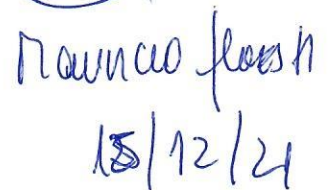 Mauricio flores h
15/12/21